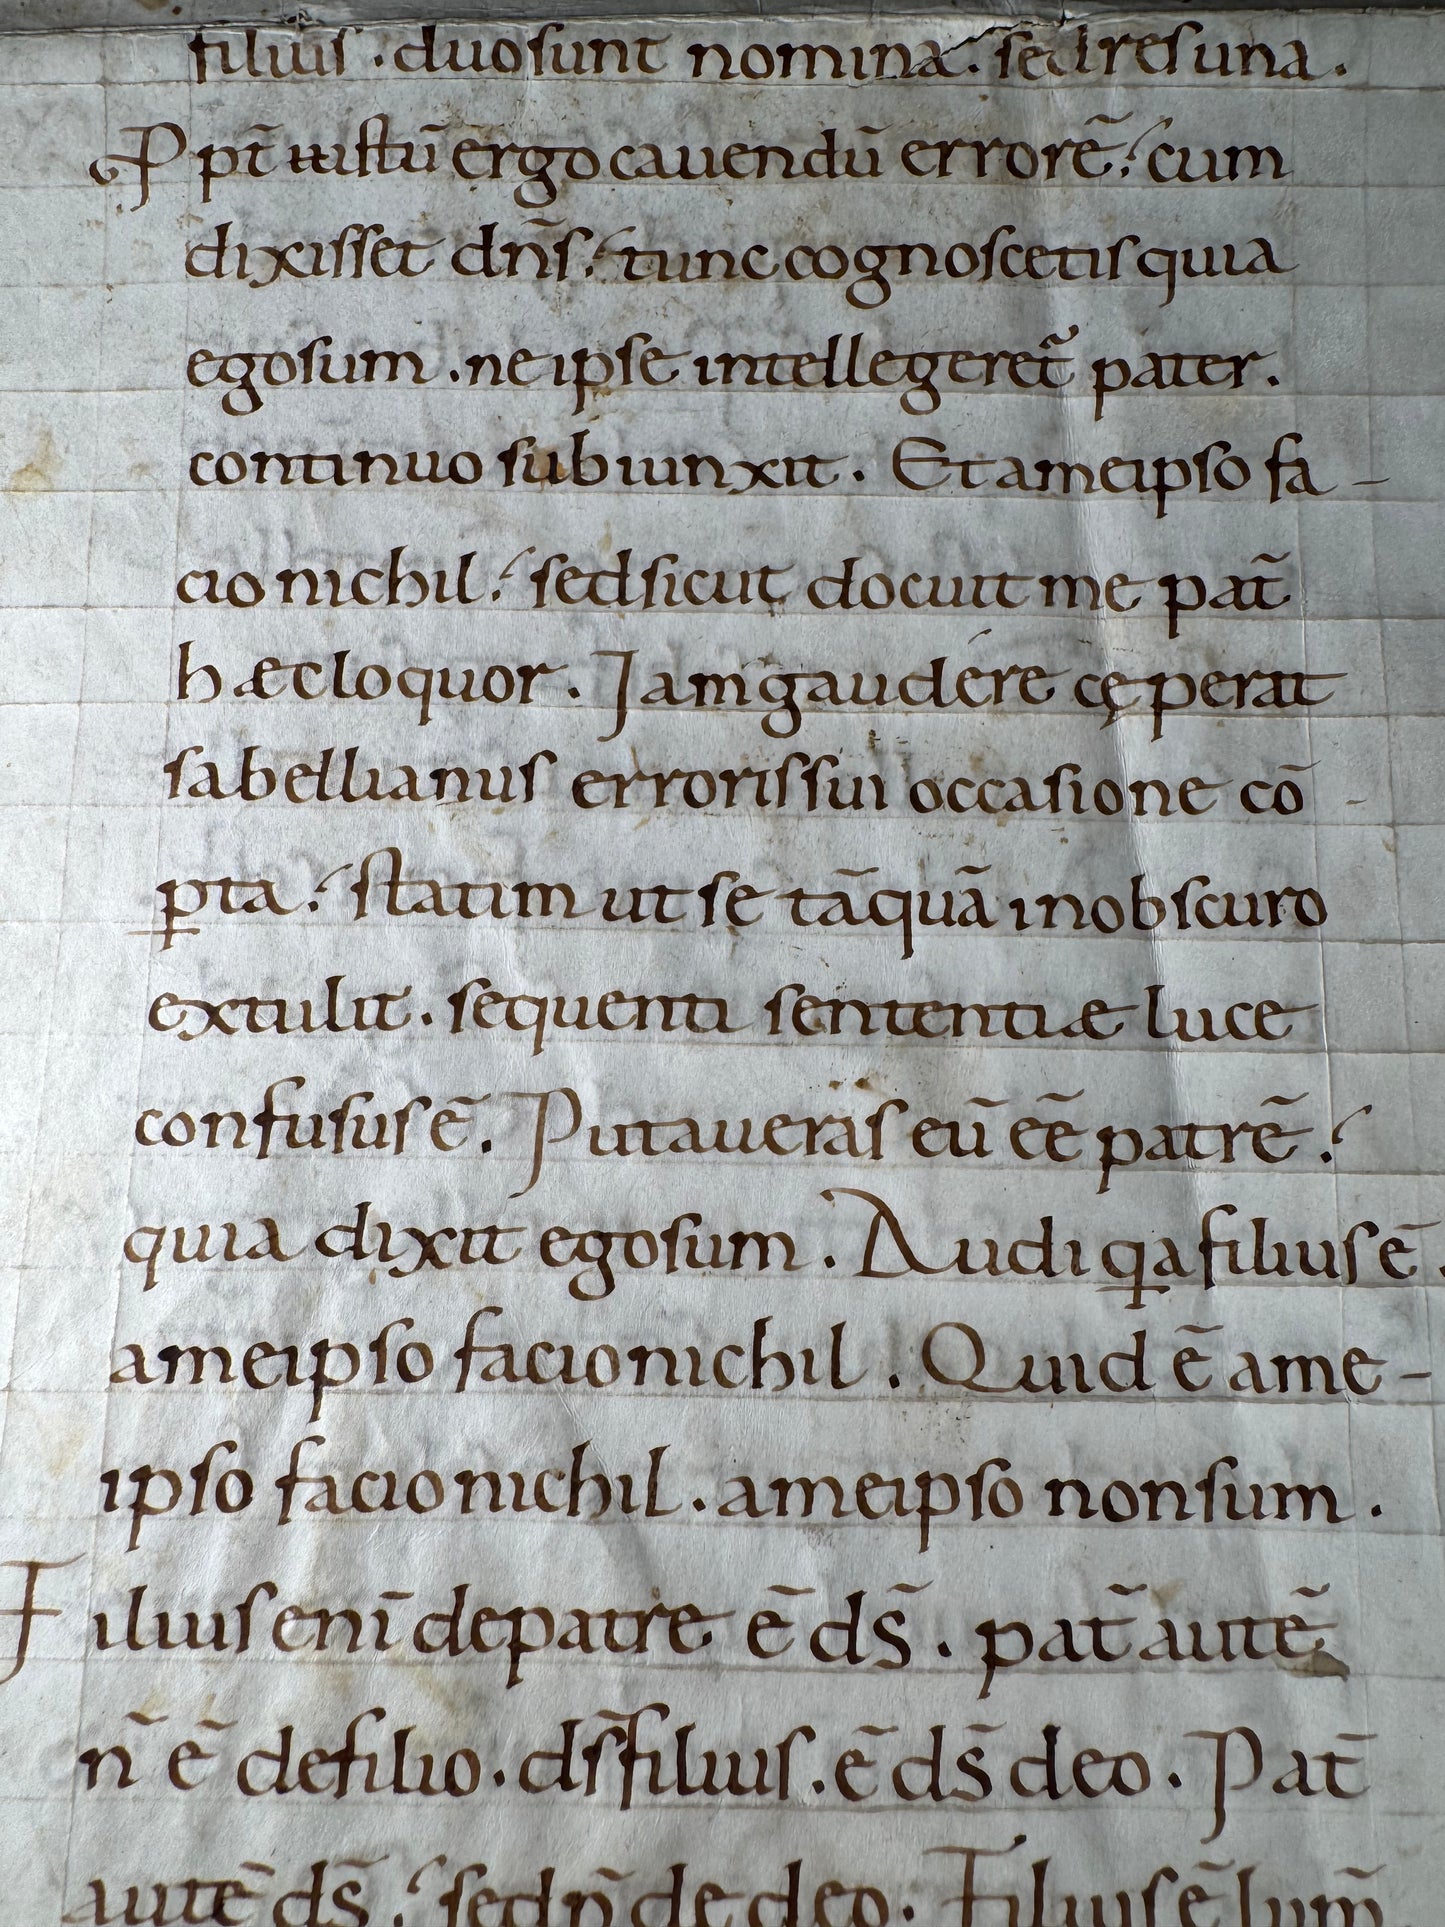 filius . duo sunt nomina . sed res una .
Ppt̄ istū ergo cauendū errorē . cum
dixisset dn̄s . tunc cognoscetis quia
ego sum . ne ipse intellegeret̃ pater .
continuo subiunxit . Et a me ipso fa-
cio nichil . sed sicut docuit me pat̄
hæc loquor . Iam gaudere cęperat
sabellianus erroris sui occasione cō-
ꝑta . statim ut se tāquā in obscuro
extulit . sequenti sententiæ luce
confusus ē . Putaueras eū eē patrē .
quia dixit ego sum . Audi q̱a filius ē .
a me ipso facio nichil . Quid ē a me-
ipso facio nichil . a me ipso non sum .
Filius enī de patre ē ds̄ . pat̄ autē
n̄ ē de filio . ds̄ filius . ē ds̄ deo . Pat̄
autē ds̄ . sed n̄ de deo . Filius ē lum̄